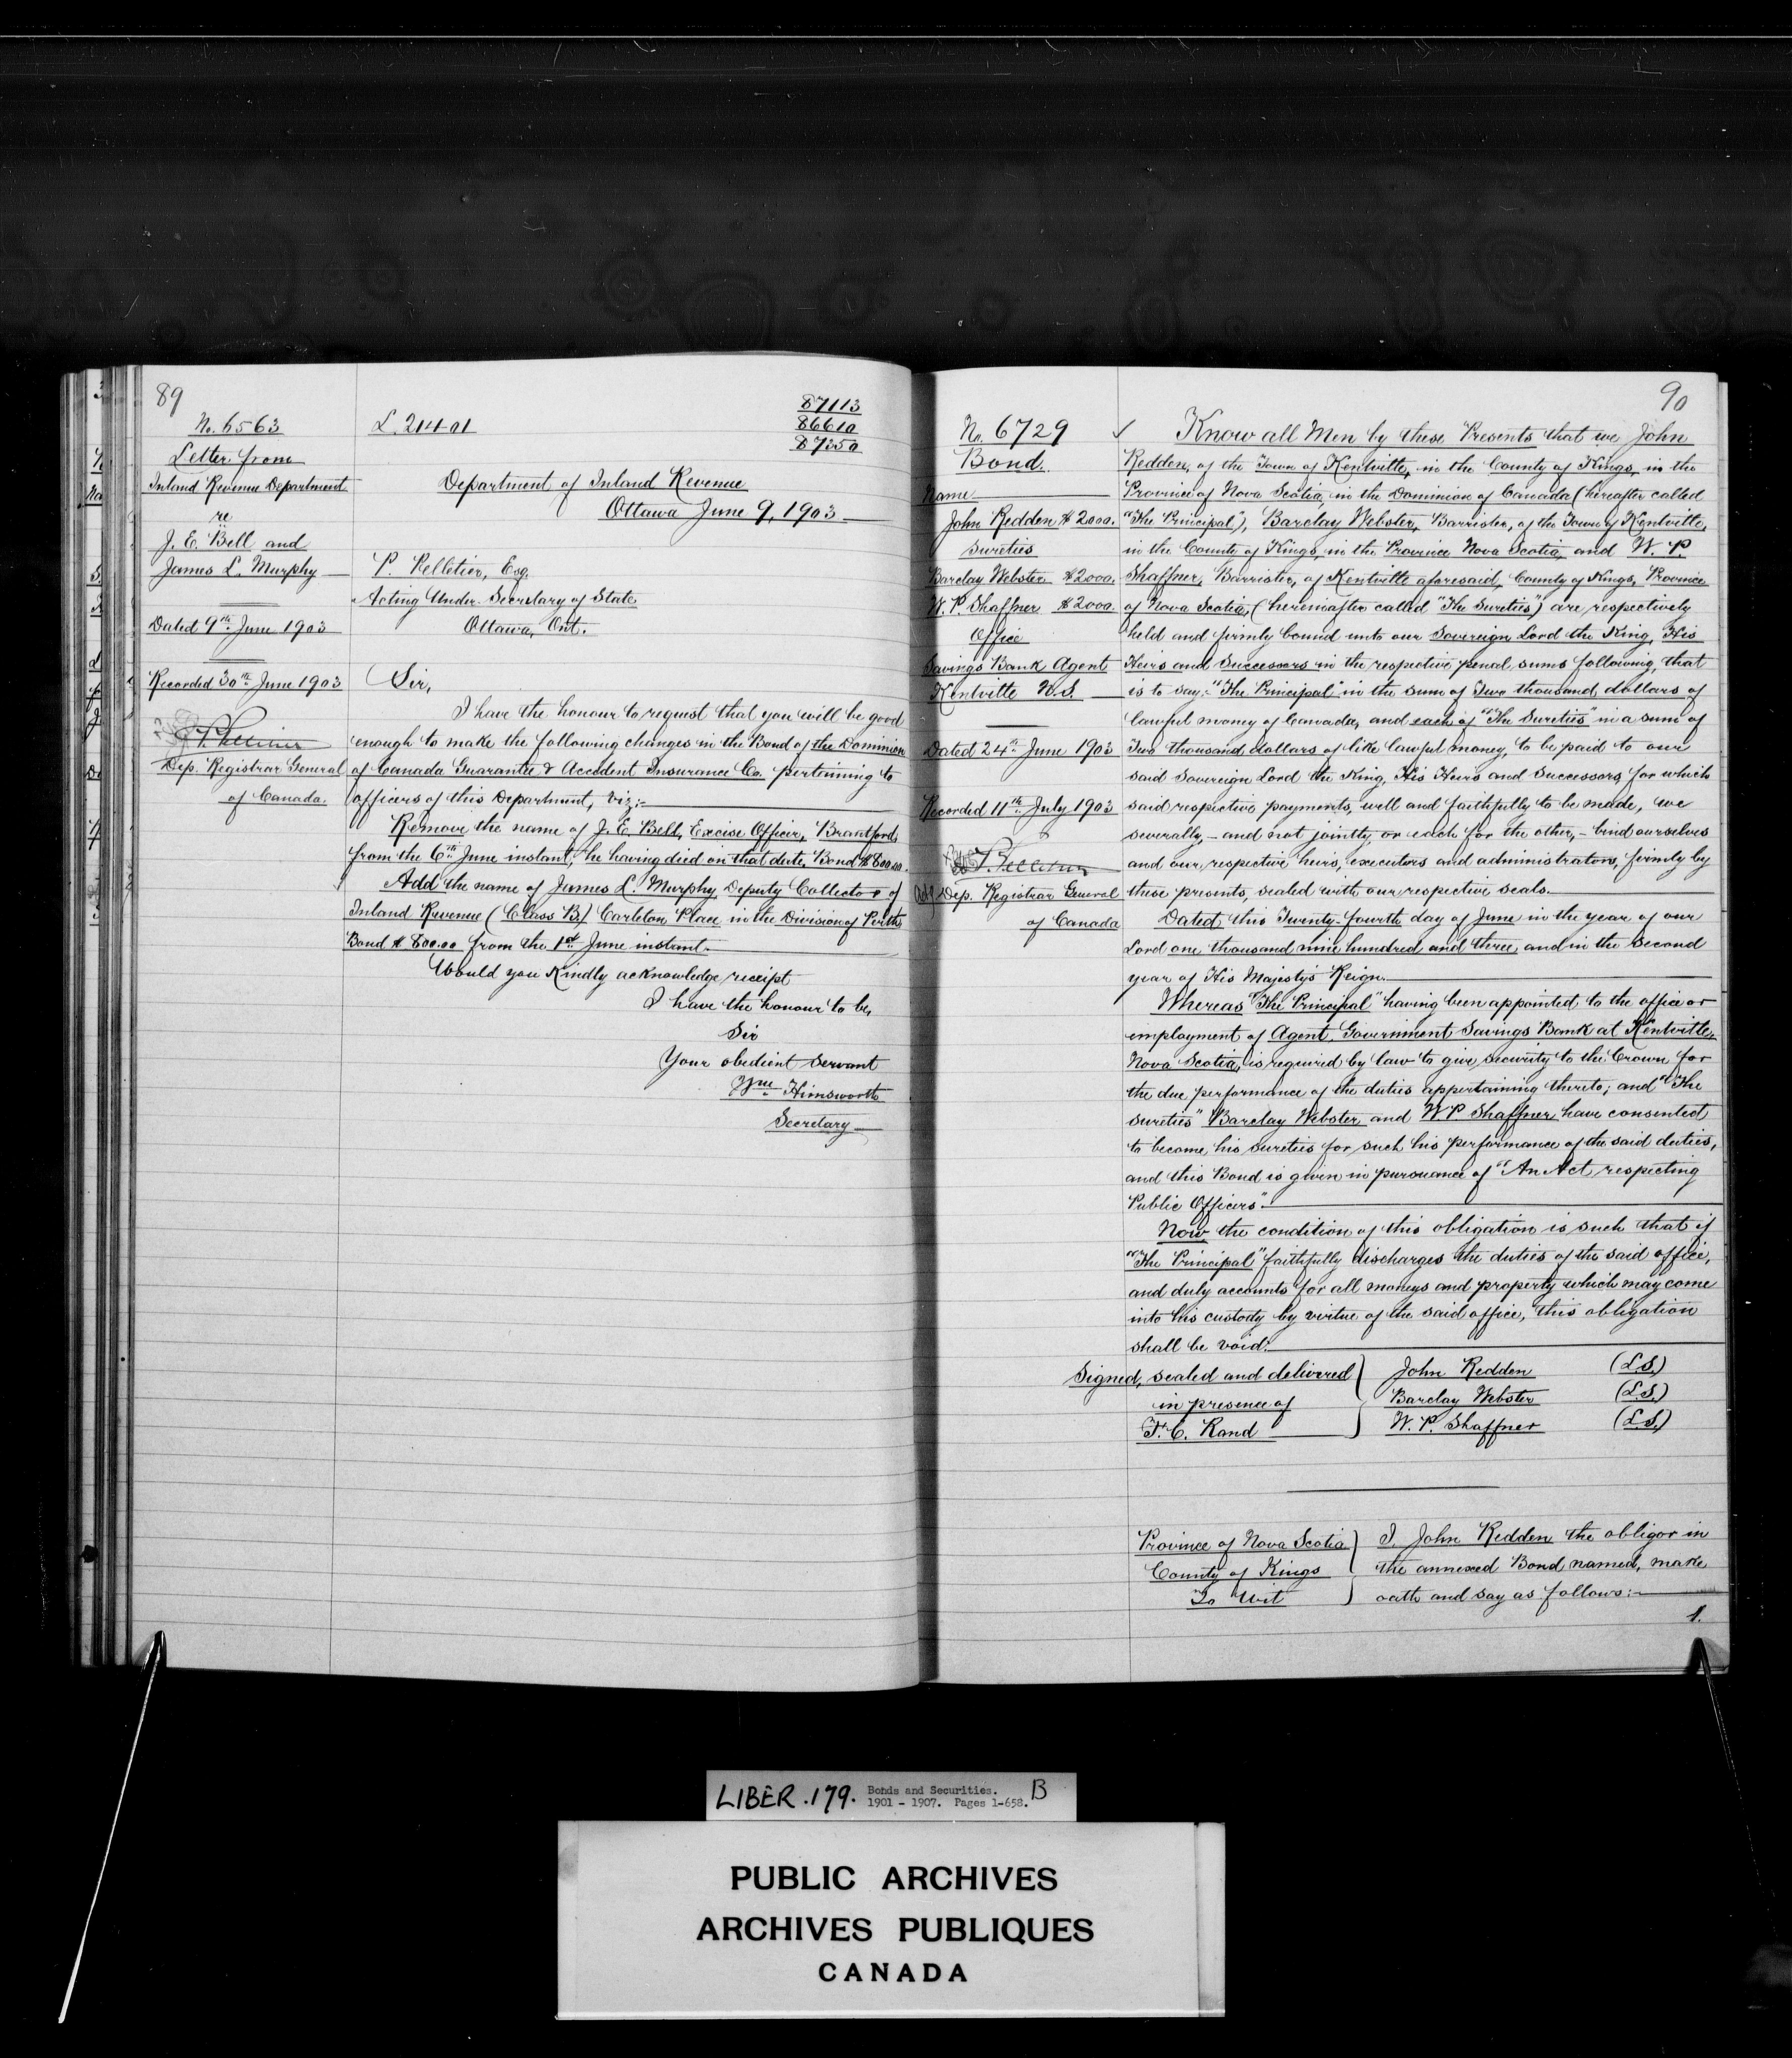 89
No. 6563
Letter from
Inland Revenue Department
re
J. E. Bell and
James L. Murphy
Dated 9th June 1903
Recorded 30th June 1903
P. Pelletier
Dep. Registrar General
of Canada.
L. 21401
87113
86610
87350
Department of Inland Revenue
Ottawa June 9, 1903
P. Pelletier, Esq.
Acting Under Secretary of State
Ottawa, Ont.
Sir,
I have the honour to request that you will be good
enough to make the following changes in the Bond of the Dominion
of Canada Guarantee & Accident Insurance Co. pertaining to
officers of this Department, viz:-
Remove the name of J. E. Bell, Excise Officer, Brantford,
from the 6th June instant, he having died on that date, Bond $800.00.
Add the name of James L. Murphy Deputy Collector of
Inland Revenue (Class B.) Carleton Place in the Division of Perth,
Bond $800.00 from the 1st June instant.
Would you kindly acknowledge receipt
I have the honour to be,
Sir
Your obedient servant
Wm Himsworth
Secretary
90
No. 6729
Bond.
Name
John Redden $2000.
Sureties
Barclay Webster $2000.
W. P. Shaffner $2000.
Office
Savings Bank Agent
Kentville N.S.
Dated 24th June 1903
Recorded 11th July 1903
P. Pelletier
Actg Dep. Registrar General
of Canada
Know all Men by these Presents that we John
Redden, of the Town of Kentville, in the County of Kings, in the
Province of Nova Scotia, in the Dominion of Canada (hereafter called
"The Principal"), Barclay Webster, Barrister, of the Town of Kentville,
in the County of Kings, in the Province Nova Scotia, and W. P.
Shaffner, Barrister, of Kentville aforesaid, County of Kings, Province
of Nova Scotia, (hereinafter called "The Sureties") are respectively
held and firmly bound unto our Sovereign Lord the King, His
Heirs and Successors in the respective penal sums following, that
is to say:- "The Principal" in the sum of Two thousand dollars of
lawful money of Canada, and each of "The Sureties" in a sum of
Two thousand dollars of like lawful money, to be paid to our
said Sovereign Lord the King, His Heirs and Successors for which
said respective payments, well and faithfully to be made, we
severally,- and not jointly or each for the other,- bind ourselves
and our respective heirs, executors and administrators, firmly by
these presents, sealed with our respective seals.
Dated this Twenty-fourth day of June in the year of our
Lord one thousand nine hundred and three, and in the second
year of His Majesty's Reign.
Whereas "The Principal" having been appointed to the office or
employment of Agent, Government Savings Bank at Kentville,
Nova Scotia, is required by law to give security to the Crown for
the due performance of the duties appertaining thereto; and "The
Sureties" Barclay Webster and W.P. Shaffner have consented
to become his sureties for such his performance of the said duties,
and this Bond is given in pursuance of "An Act respecting
Public Officers".
Now the condition of this obligation is such that if
"The Principal" faithfully discharges the duties of the said office,
and duly accounts for all moneys and property which may come
into his custody by virtue of the said office, this obligation
shall be void.
Signed, sealed and delivered
in presence of
F. C. Rand
John Redden (L.S.)
Barclay Webster (L.S.)
W. P. Shaffner (L.S.)
Province of Nova Scotia
County of Kings
To Wit
I, John Redden the obligor in
the annexed Bond named, make
oath and say as follows:-
1.
LIBER .179. Bonds and Securities. B
1901 - 1907. Pages 1-658.
PUBLIC ARCHIVES
ARCHIVES PUBLIQUES
CANADA